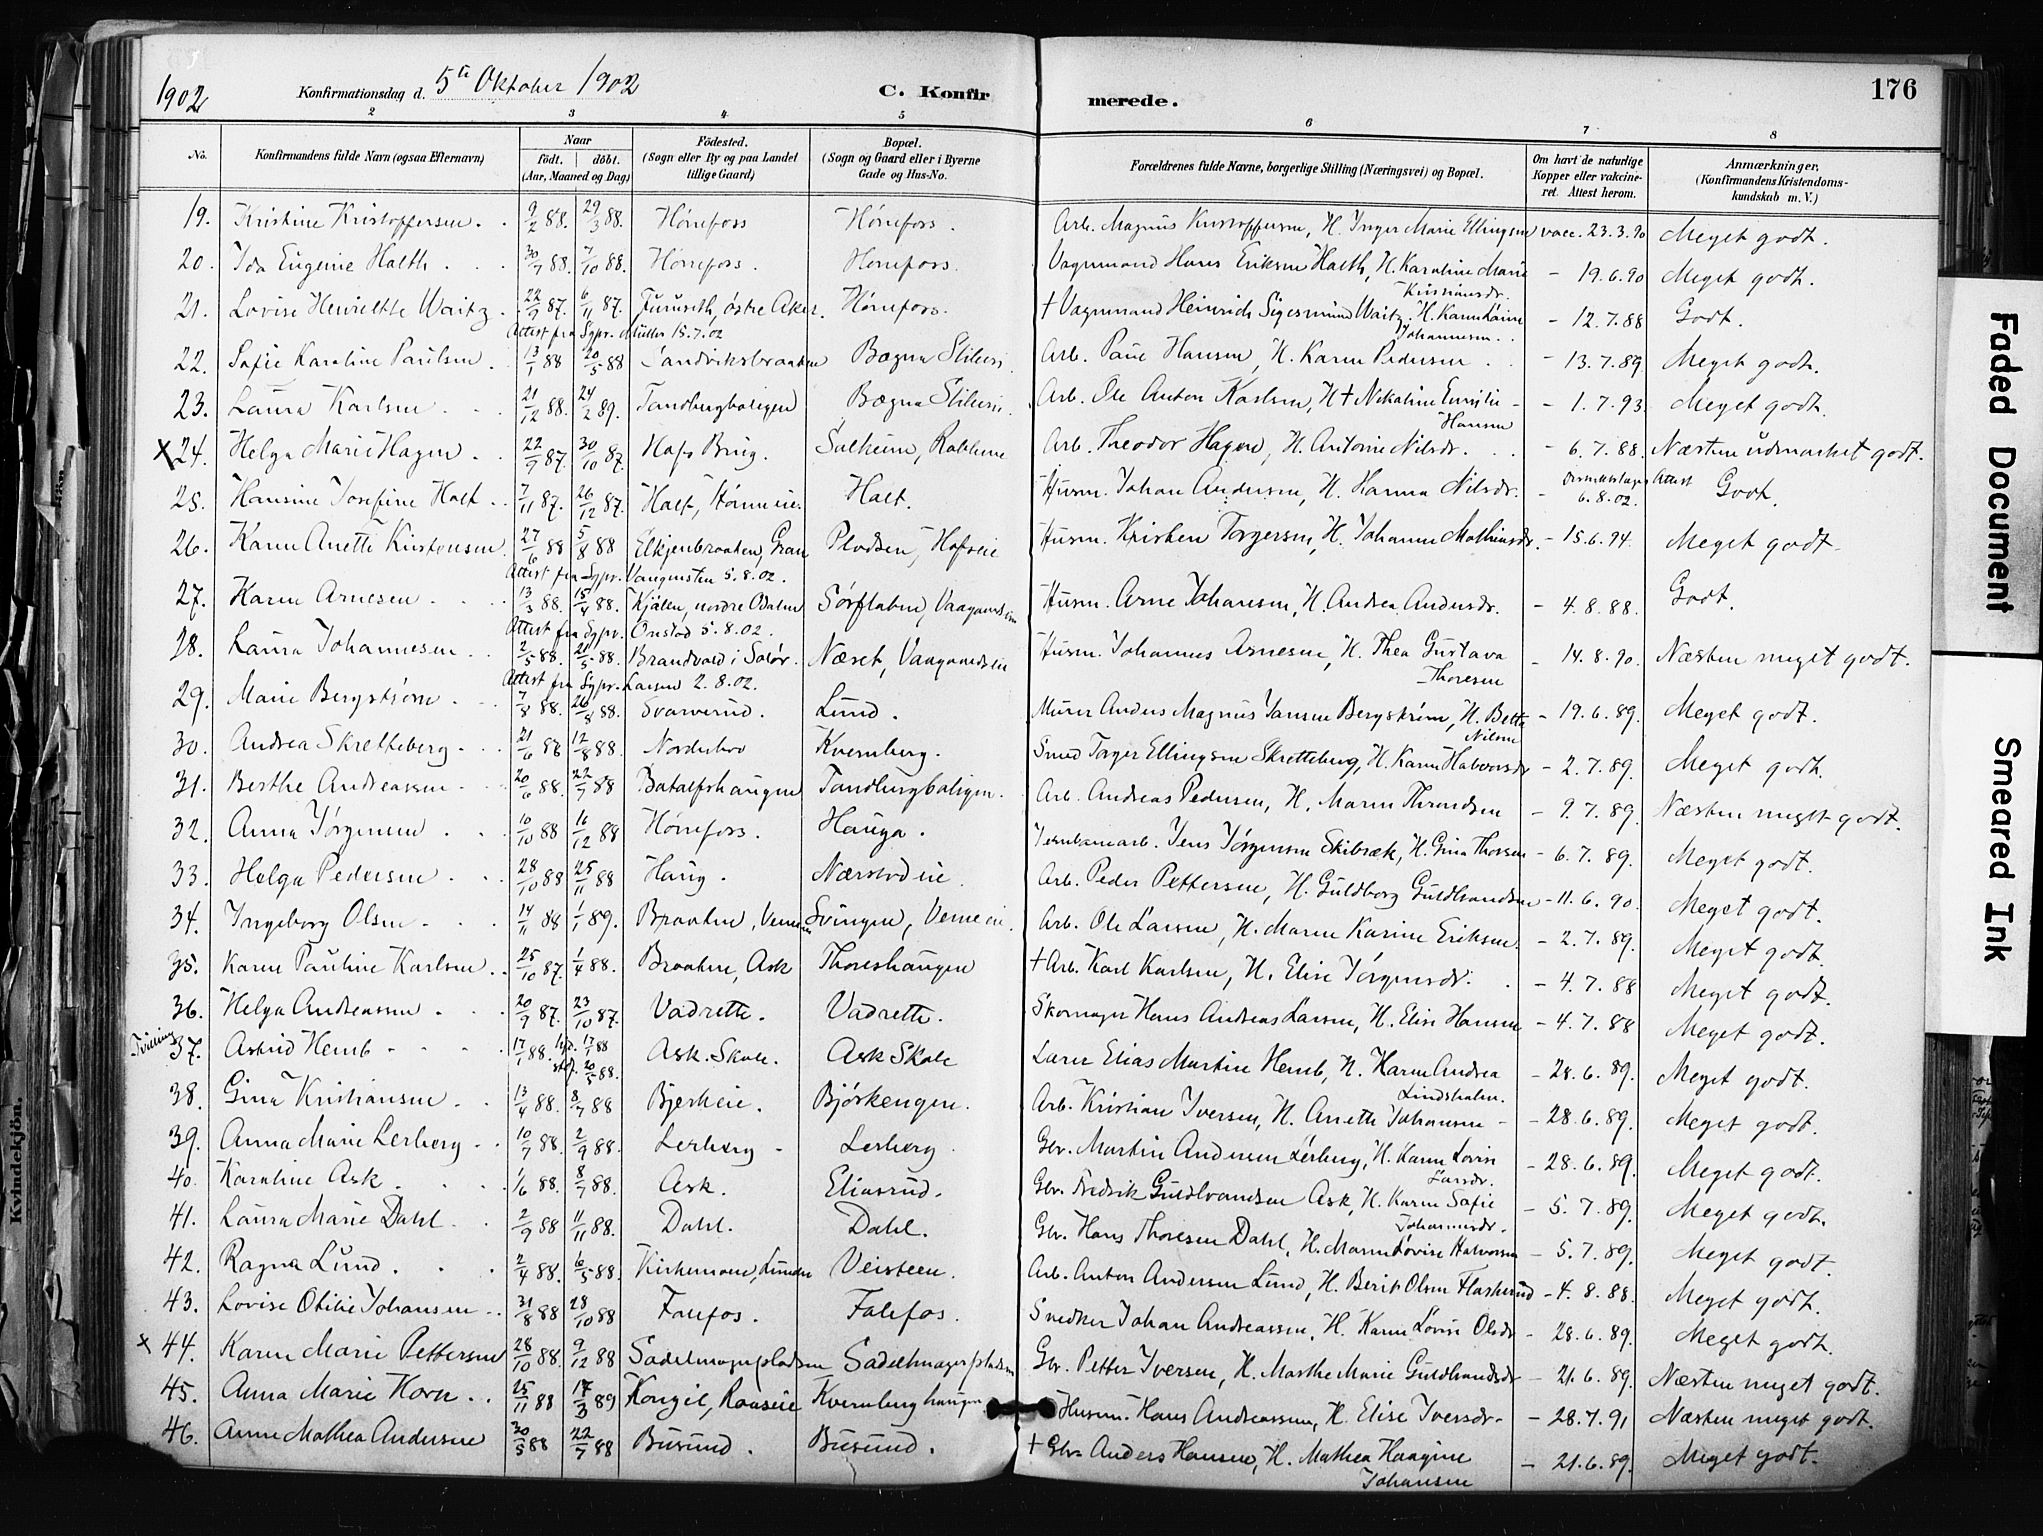 1902
Konfirmationsdag d. 5te Oktober 1902
C. Konfir
merede.
176
2 3 4 5 6 7 8
No.
Konfirmandens fulde Navn (ogsaa Efternavn)
Naar
født. døbt.
(Aar, Maaned og Dag)
Fødested.
(Sogn eller By og paa Landet
tillige Gaard)
Bopæl.
(Sogn og Gaard eller i Byerne
Gade og Hus-No.
Forældrenes fulde Navne, borgerlige Stilling (Næringsvei) og Bopæl.
Om havt de naturlige
Kopper eller vakcine-
ret. Attest herom.
Anmærkninger,
(Konfirmandens Kristendoms-
kundskab m. V.)
19. Kristine Kristoffersen. 9/2 88. 29/3 88. Hønefoss Hønefoss. Arb. Magnus Kristoffersen, H. Inger Marie Ellingsen vacc. 23.3.90 Meget godt.
20. Ida Eugenie Halth 30/7 88. 7/10 88. Hønefoss. Hønefoss. Vognmand Hans Eriksen Halth, H. Karoline Marie Kristiansdr. - 19.6.90 Meget godt.
21. Lovise Henriette Waitz 22/9 87. 6/11 87. Furuseth, østre Aker. Hønefoss. + Vognmand Heinrich Sigesmund Waitz, H. Karen Lovise Johannesen. - 12.7.88 Godt.
Attest fra Sgpr. Müller 15.7.02
22. Sofie Karoline Paulsen. 13/1 88 20/5 88 Sandviksbraaten Bægna Sliberi. Arb. Paul Hansen, H. Karen Pedersen - 13.7.89 Meget godt.
23. Laura Karlsen 21/12 88. 24/2 89. Tandbergboligen Bægna Sliberi. Arb. Ole Anton Karlsen, H. + Nikoline Emilie Hansen - 1.7.93. Meget godt.
x 24. Helga Marie Hagen. 22/9 87. 30/10 87. Hofs Brug. Solheim, Rabbene Arb. Theodor Hagen, H. Antonie Nilsdr. - 6.7.88. Næsten udmærket godt.
25. Hansine Josefine Holt 7/11 87. 26/12 87. Holt, Hønneie. Holt. Husm. Johan Andersen, H. Hanna Nilsdr. - Distriktslæges Attest 6.8.02. Godt.
26. Karen Anette Kristensen 27/6 88 5/8 88 Elkjenbraaten, Gran Pladsen, Hofseie Husm. Kristen Torgersen, H. Johanne Mathiasdr. - 15.6.94. Meget godt.
Attest fra Sgpr. Vangensten 5.8.02.
27. Karen Arnesen 13/3 88. 15/4 88. Kjølen, nordre Odalen Sørflaten, Vaagaardseie Husm. Arne Johansen, H. Andrea Andersdr. - 4.8.88. Godt.
Attest fra Sgpr. Onstad 5.8.02.
28. Laura Johannesen 2/5 88. 21/5 88. Brandvold i Solør. Næset, Vaagaardseie Husm. Johannes Arnesen, H. Thea Gustava Thoresen - 14.8.90. Næsten meget godt.
Attest fra Sgpr. Larsen 2.8.02.
29. Marie Bergstrøm 7/8 88. 26/8 88. Svarverud. Lund. Murer Anders Magnus Jansen Bergstrøm, H. Betta Nilsen - 19.6.89. Meget godt.
30. Andrea Skretteberg 21/6 88 12/8 88. Norderhov Kvernberg. Smed Torger Ellingsen Skretteberg, H. Karen Halvorsdr - 2.7.89. Meget godt.
31. Berthe Andreassen 20/6 88. 22/7 88 Botolfshaugen Tandbergboligen. Arb. Andreas Pedersen, H. Maren Throndsen - 9.7.89. Næsten meget godt.
32. Anna Jørgensen 10/10 88 16/12 88 Hønefoss. Hauga. Jernbanearb. Jens Jørgensen Skibræk, H. Gina Thorsen - 6.7.89. Meget godt.
33. Helga Pedersen 28/10 88 25/11 88 Haug. Nærstadeie. Arb. Peder Pettersen, H. Guldborg Guldbrandsen - 11.6.90. Meget godt.
34. Ingeborg Olsen 14/11 88 1/1 89. Braaten, Vemeeie Svingen, Vemeeie. Arb. Ole Larsen, H. Maren Karine Eriksen. - 2.7.89. Meget godt.
35. Karen Pauline Karlsen 25/10 87. 1/4 88. Braaten, Ask Thoreshaugen + Arb. Karl Karlsen, H. Elise Jørgensdr. - 4.7.88 Meget godt.
36. Helga Andreassen 20/9 87. 23/10 87. Vadrette. Vadrette. Skomager Hans Andreas Larsen, H. Elise Hansen - 4.7.88 Meget godt.
Tvilling 37. Astrid Hemb 17/1 88. hjd. 17/1 88 stf. 20/5 88. Ask Skole. Ask Skole Lærer Elias Martin Hemb, H. Karen Andrea Lindsholm. - 28.6.89. Meget godt.
38. Gina Kristiansen 13/4 88. 8/7 88 Bjerkeie. Bjørkengen. Arb. Kristian Iversen, H. Anette Johansen - 28.6.89. Meget godt.
39. Anna Marie Lerberg 10/7 88. 2/9 88. Lerberg Lerberg Gbr. Martin Andersen Lerberg, H. Karen Lovise Larsdr. - 28.6.89. Meget godt.
40. Karoline Ask 1/6 88. 8/7 88. Ask. Eliasrud. Gbr. Fredrik Guldbrandsen Ask, H. Karen Sofie Johannesdr. - 5.7.89. Meget godt.
41. Laura Marie Dahl 2/9 88 11/11 88. Dahl. Dahl. Gbr. Hans Thoresen Dahl, H. Maren Lovise Halvorsen - 5.7.89. Meget godt.
42. Ragna Lund. 2/4 88. 6/5 88. Kirkemoen, Lunder Veisteen. Arb. Anton Andersen Lund, H. Berit Olsen Flaskerud - 4.8.88. Meget godt.
43. Lovise Otilie Johansen 31/8 88 28/10 88 Folefos. Folefos. Snedker Johan Andreassen, H. Karen Lovise Olsdr - 28.6.89. Meget godt.
x 44. Karen Marie Pettersen 28/10 88. 9/12 88 Sadelmagerpladsen Sadelmagerpladsen Gbr. Petter Iversen, H. Marthe Marie Guldbrandsdr - 21.6.89. Næsten meget godt.
45. Anna Marie Horn 25/11 88 17/3 89 Kongel, Raaseie Kvernberghaugen Husm. Hans Andreassen, H. Elise Iversdr. - 28.7.91 Næsten meget godt.
46. Anne Mathea Andersen 30/5 88 22/7 88 Busund. Busund. + Gbr. Anders Hansen, H. Mathea Haagine Johansen - 21.6.89. Meget godt.
Kvindekjön.
Faded Document
Smeared Ink